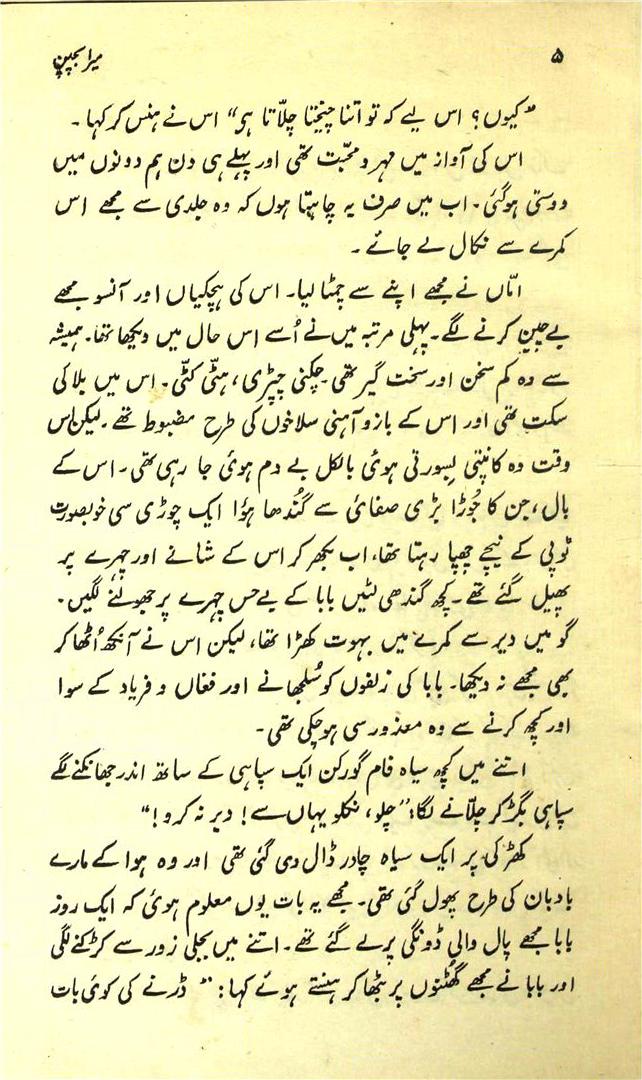 ۵
میرا بچپن
"کیوں؟ اس لیے کہ تو اتنا چیختا چلّاتا ہو" اس نے ہنس کر کہا۔
اس کی آواز میں مہر و محبّت تھی اور پہلے ہی دن ہم دونوں میں
دوستی ہوگئی۔ اب میں صرف یہ چاہتا ہوں کہ وہ جلدی سے مجھے اس
کمرے سے نکال لے جائے۔
امّاں نے مجھے اپنے سے چمٹا لیا۔ اس کی ہچکیاں اور آنسو مجھے
بےچین کرنے لگے۔ پہلی مرتبہ میں نے اُسے اس حال میں دیکھا تھا۔ ہمیشہ
سے وہ کم سخن اور سخت گیر تھی۔ چکنی چپڑی، ہٹّی کٹّی۔ اس میں بلا کی
سکت تھی اور اس کے بازو آہنی سلاخوں کی طرح مضبوط تھے۔ لیکن اس
وقت وہ کانپتی بسورتی ہوئی بالکل بے دم ہوئی جا رہی تھی۔ اس کے
بال، جن کا جُوڑا بڑی صفائی سے گُندھا ہؤا ایک چوڑی سی خوبصورت
ٹوپی کے نیچے چھپا رہتا تھا، اب بکھر کر اس کے شانے اور چہرے پر
پھیل گئے تھے۔ کچھ گندھی لٹیں بابا کے بےحس چہرے پر جھولنے لگیں۔
گو میں دیر سے کمرے میں مبہوت کھڑا تھا، لیکن اس نے آنکھ اُٹھا کر
بھی مجھے نہ دیکھا۔ بابا کی زلفوں کو سُلجھانے اور فغاں و فریاد کے سوا
اور کچھ کرنے سے وہ معذور سی ہوچکی تھی۔
اتنے میں کچھ سیاہ فام گورکن ایک سپاہی کے ساتھ اندر جھانکنے لگے
سپاہی بگڑ کر چلّانے لگا: "چلو، نکلو یہاں سے! دیر نہ کرو!"
کھڑکی پر ایک سیاہ چادر ڈال دی گئی تھی اور وہ ہوا کے مارے
بادبان کی طرح پھول گئی تھی۔ مجھے یہ بات یوں معلوم ہوئی کہ ایک روز
بابا مجھے پال والی ڈونگی پر لے گئے تھے۔ اتنے میں بجلی زور سے کڑکنے لگی
اور بابا نے مجھے گھٹنوں پر بٹھا کر ہنستے ہوئے کہا: "ڈرنے کی کوئی بات